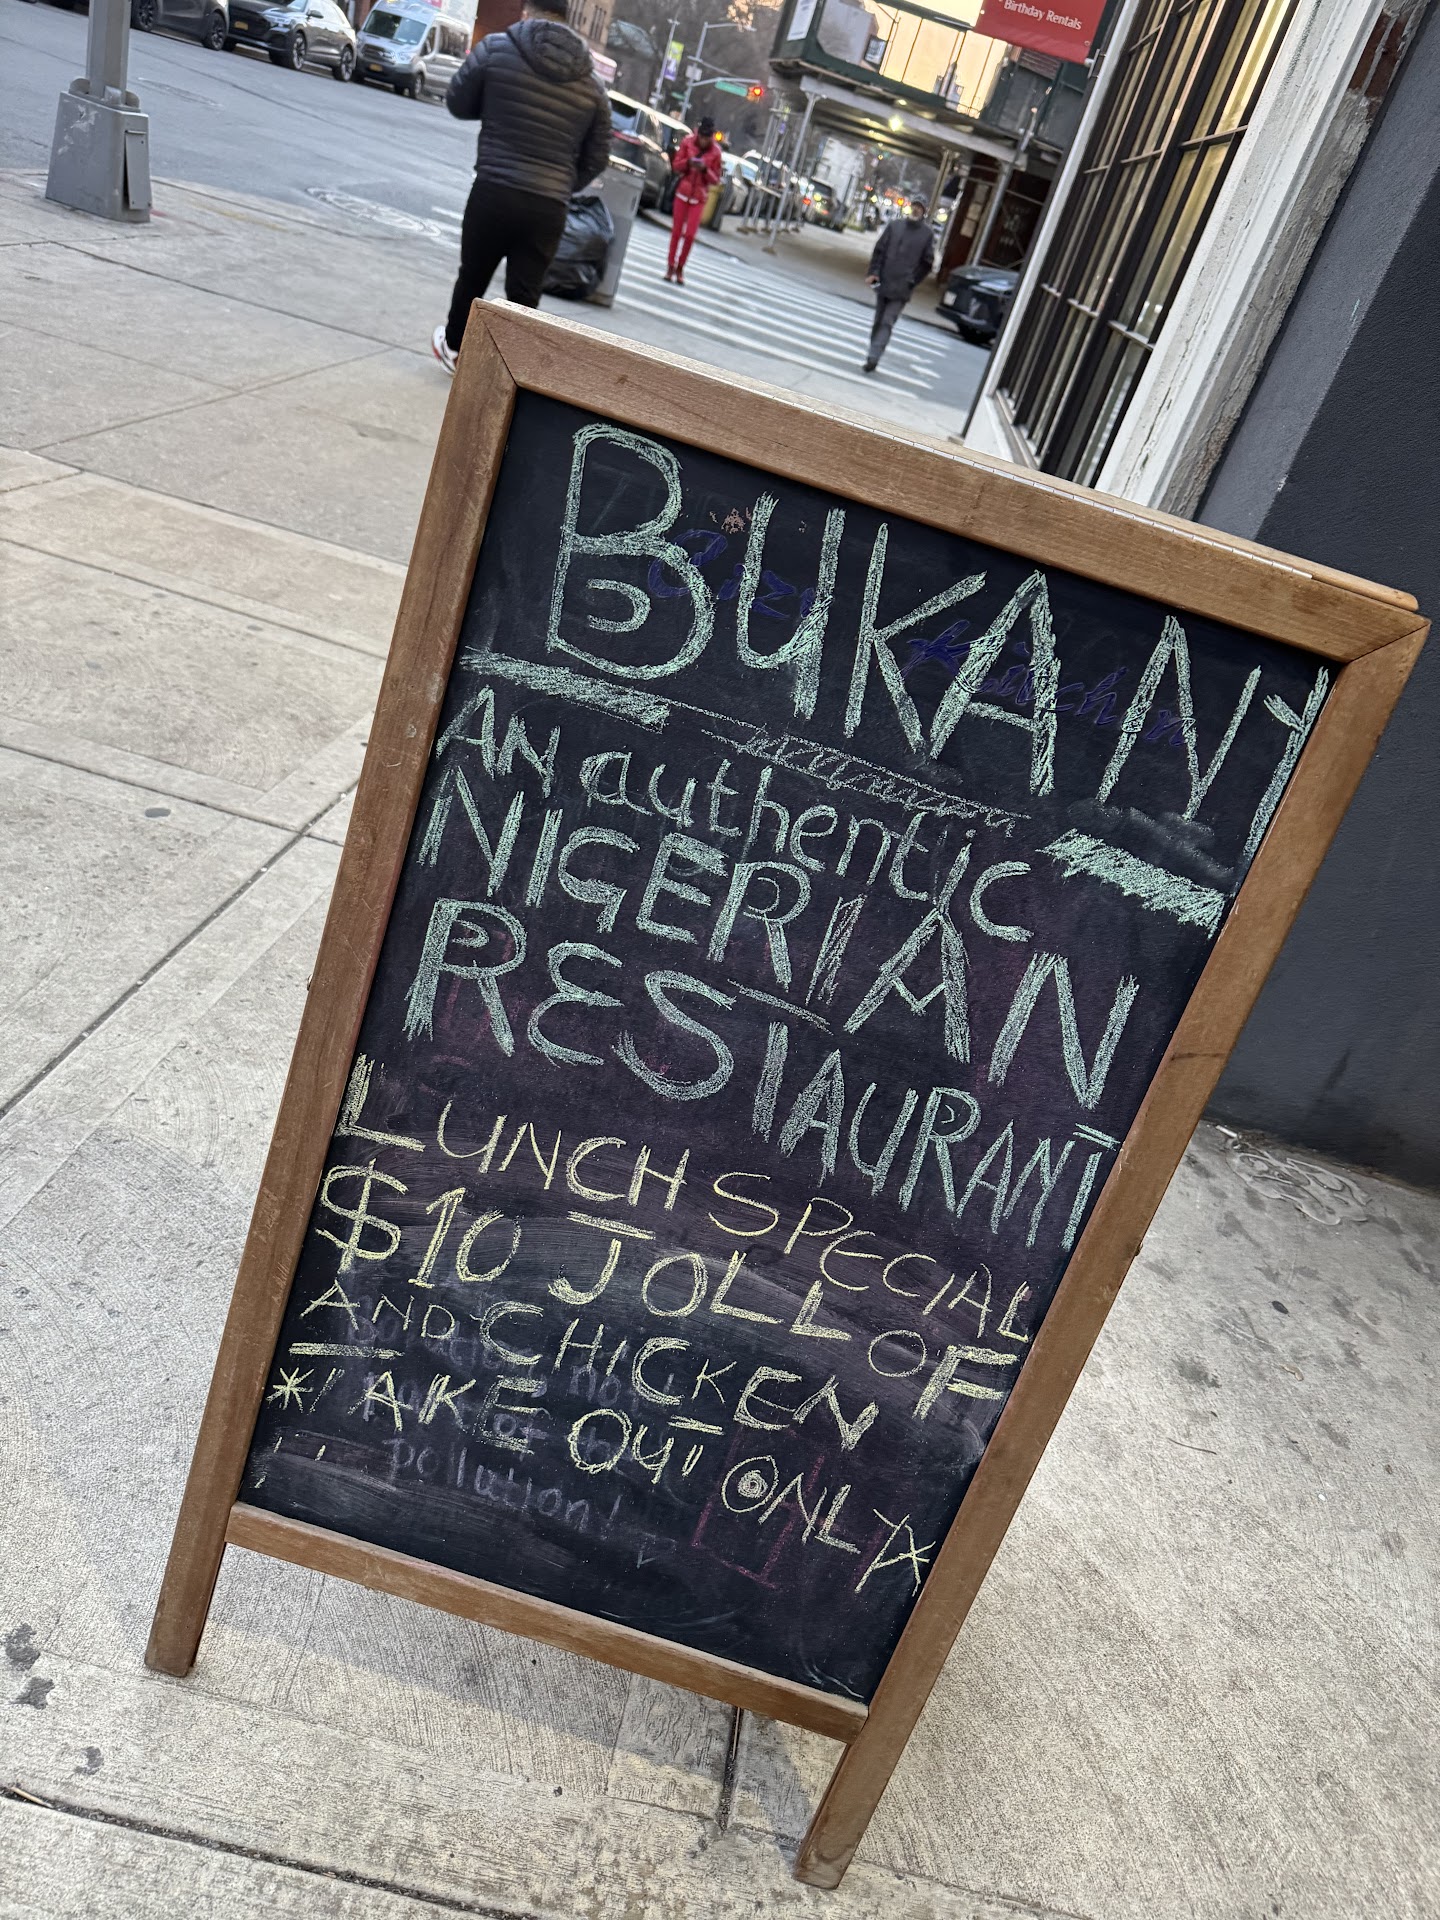 Birthday Rentals
BUKA NY
AN authentic
NIGERIAN
RESTAURANT
LUNCH SPECIAL
$10 JOLLOF
AND CHICKEN
*TAKE OUT ONLY*
pollution!